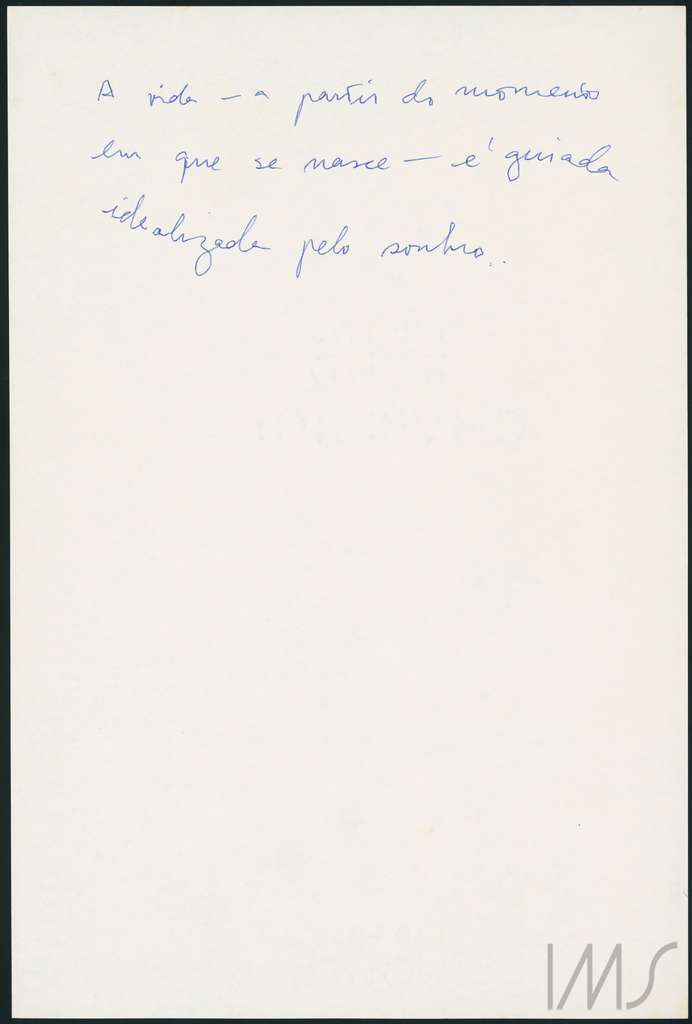 A vida – a partir do momento
em que se nasce – é guiada
idealizada pelo sonho..
IMS